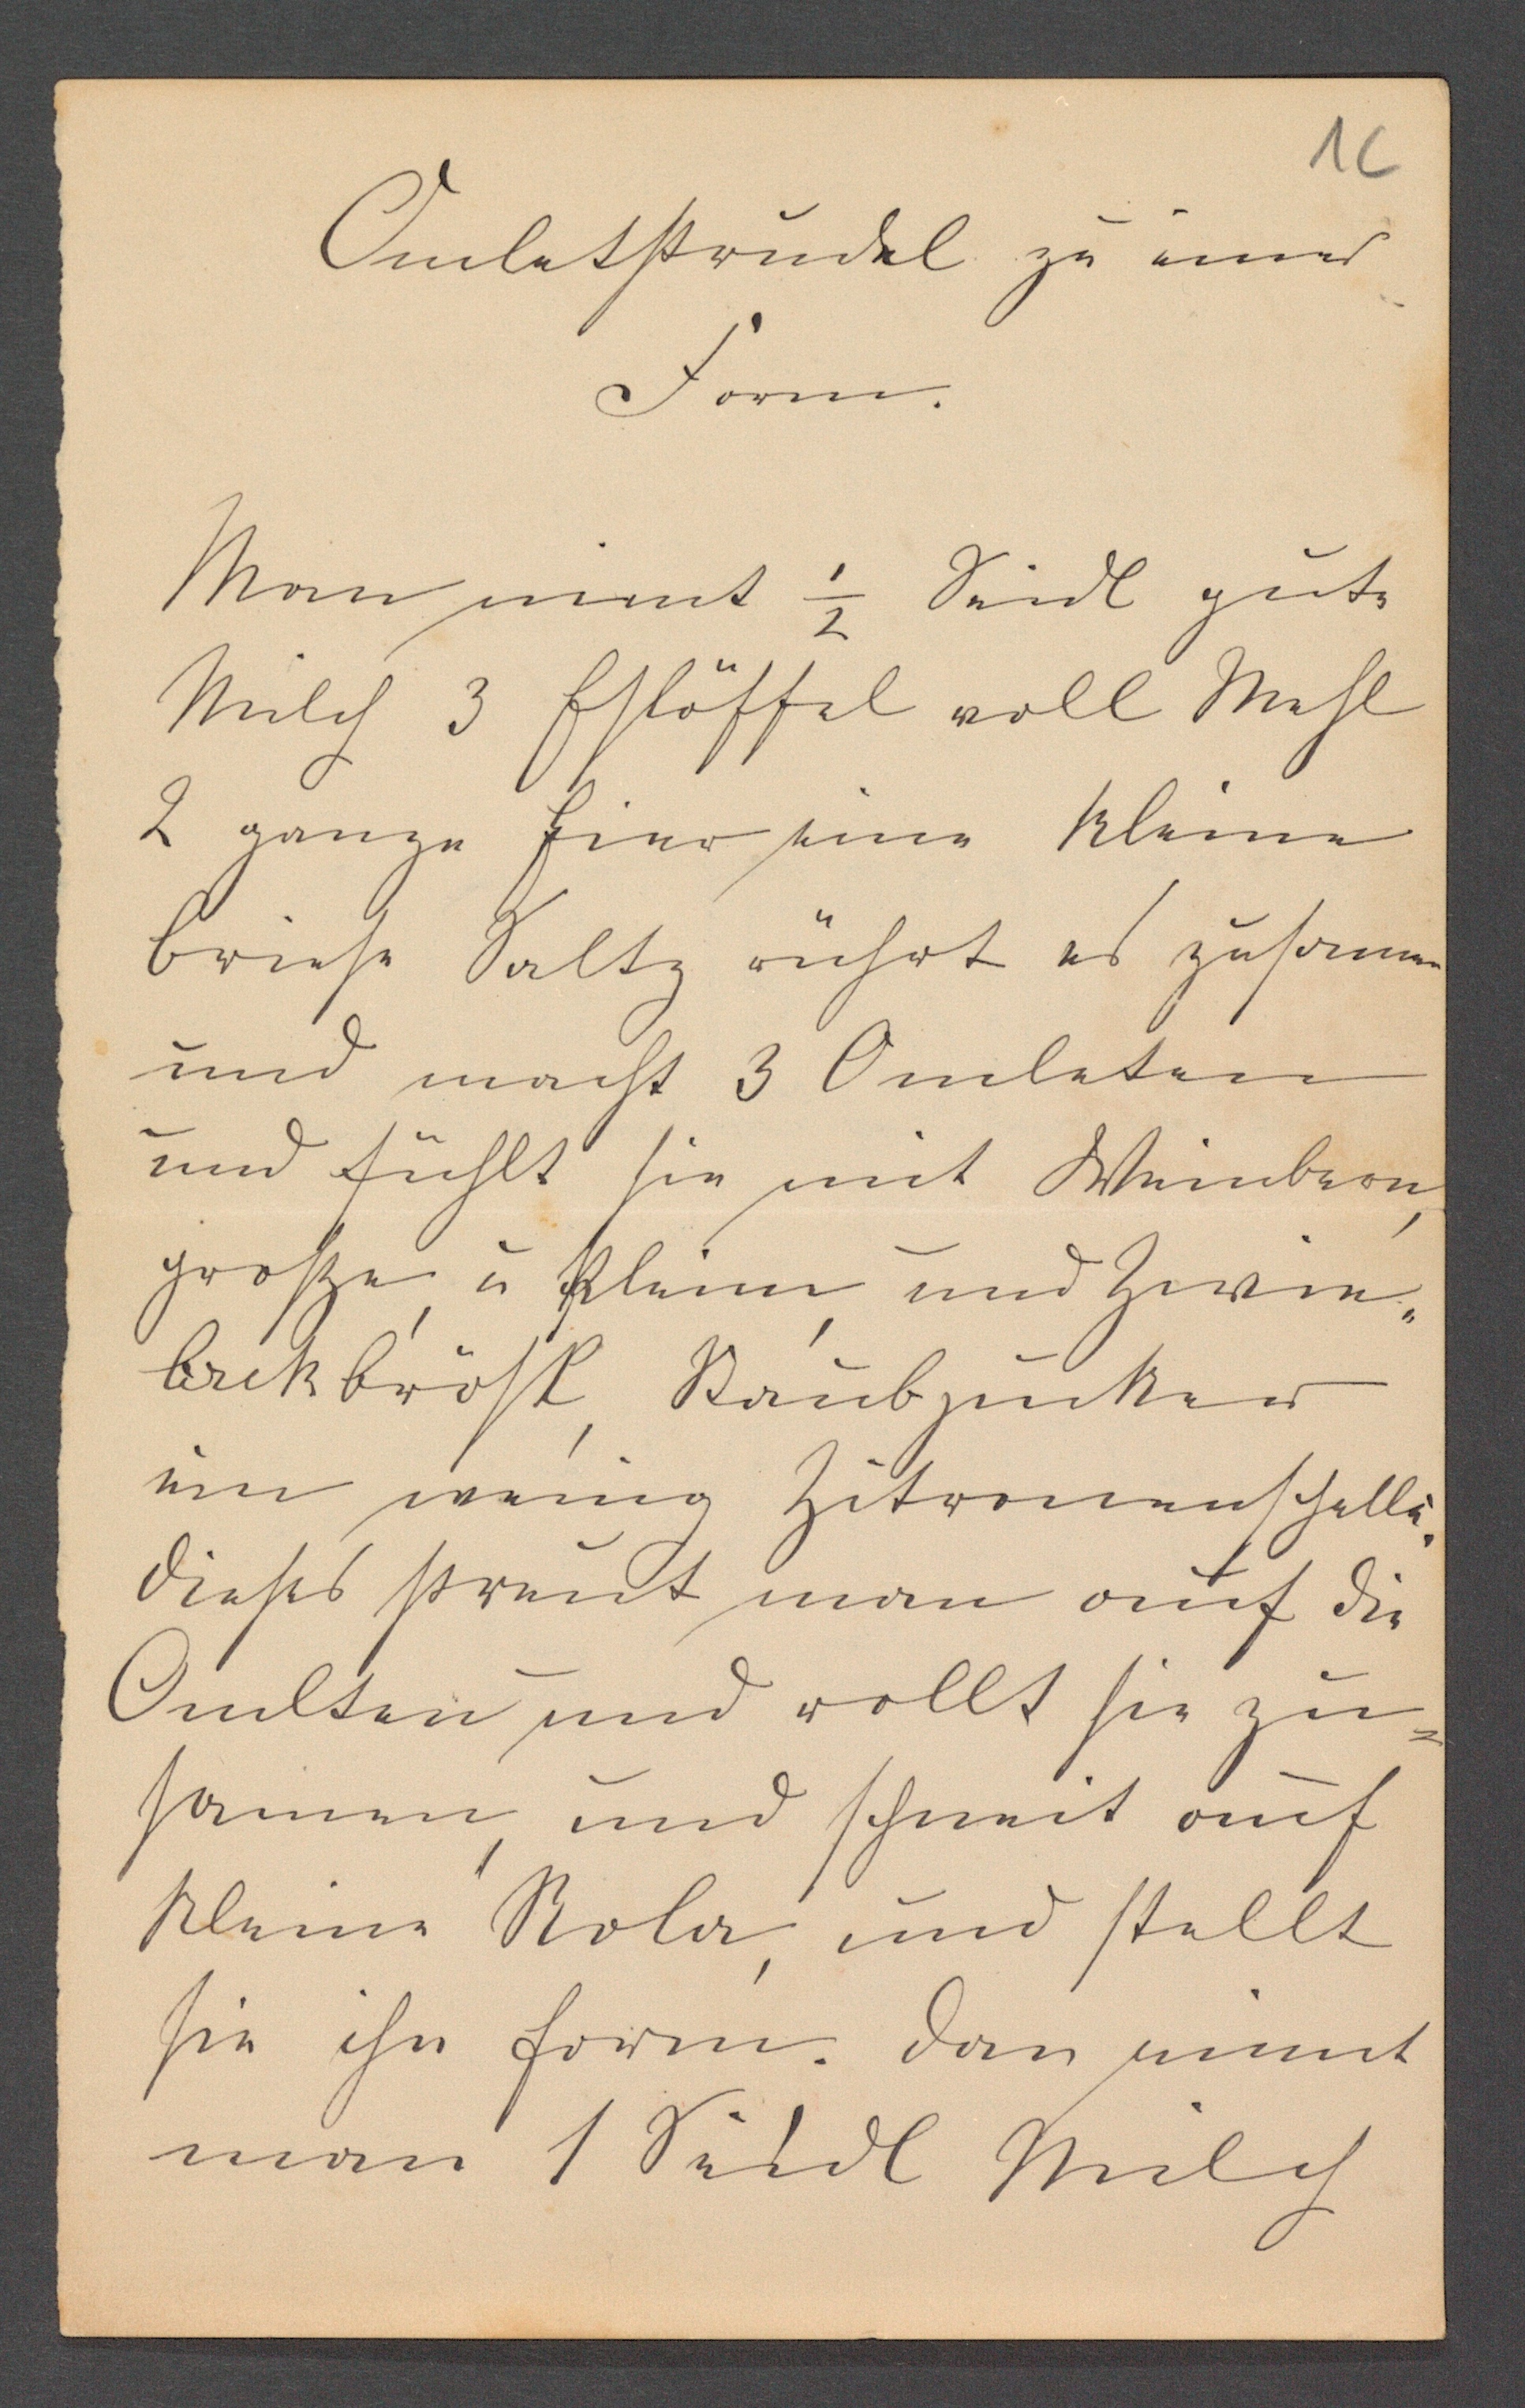 1C
Omletstrudel zu einer
Form.
Man nimt ½ Seidl gute
Milch 3 Eslöffel voll Mehl
2 ganze Eier eine kleine
briese Saltz rührt es zusamen
und macht 3 Omleten
und fühlt sie mit Weinbern,
große, u kleine, und Zwie„
bakbrösl, Staubzucker
ein wenig Zitronenschelle.
dieses streut man auf die
Omlten und rollt sie zu=
samen, und schneit auf
kleine Rola, und stellt
sie ihn form. dan nimt
man 1 Seidl Milch